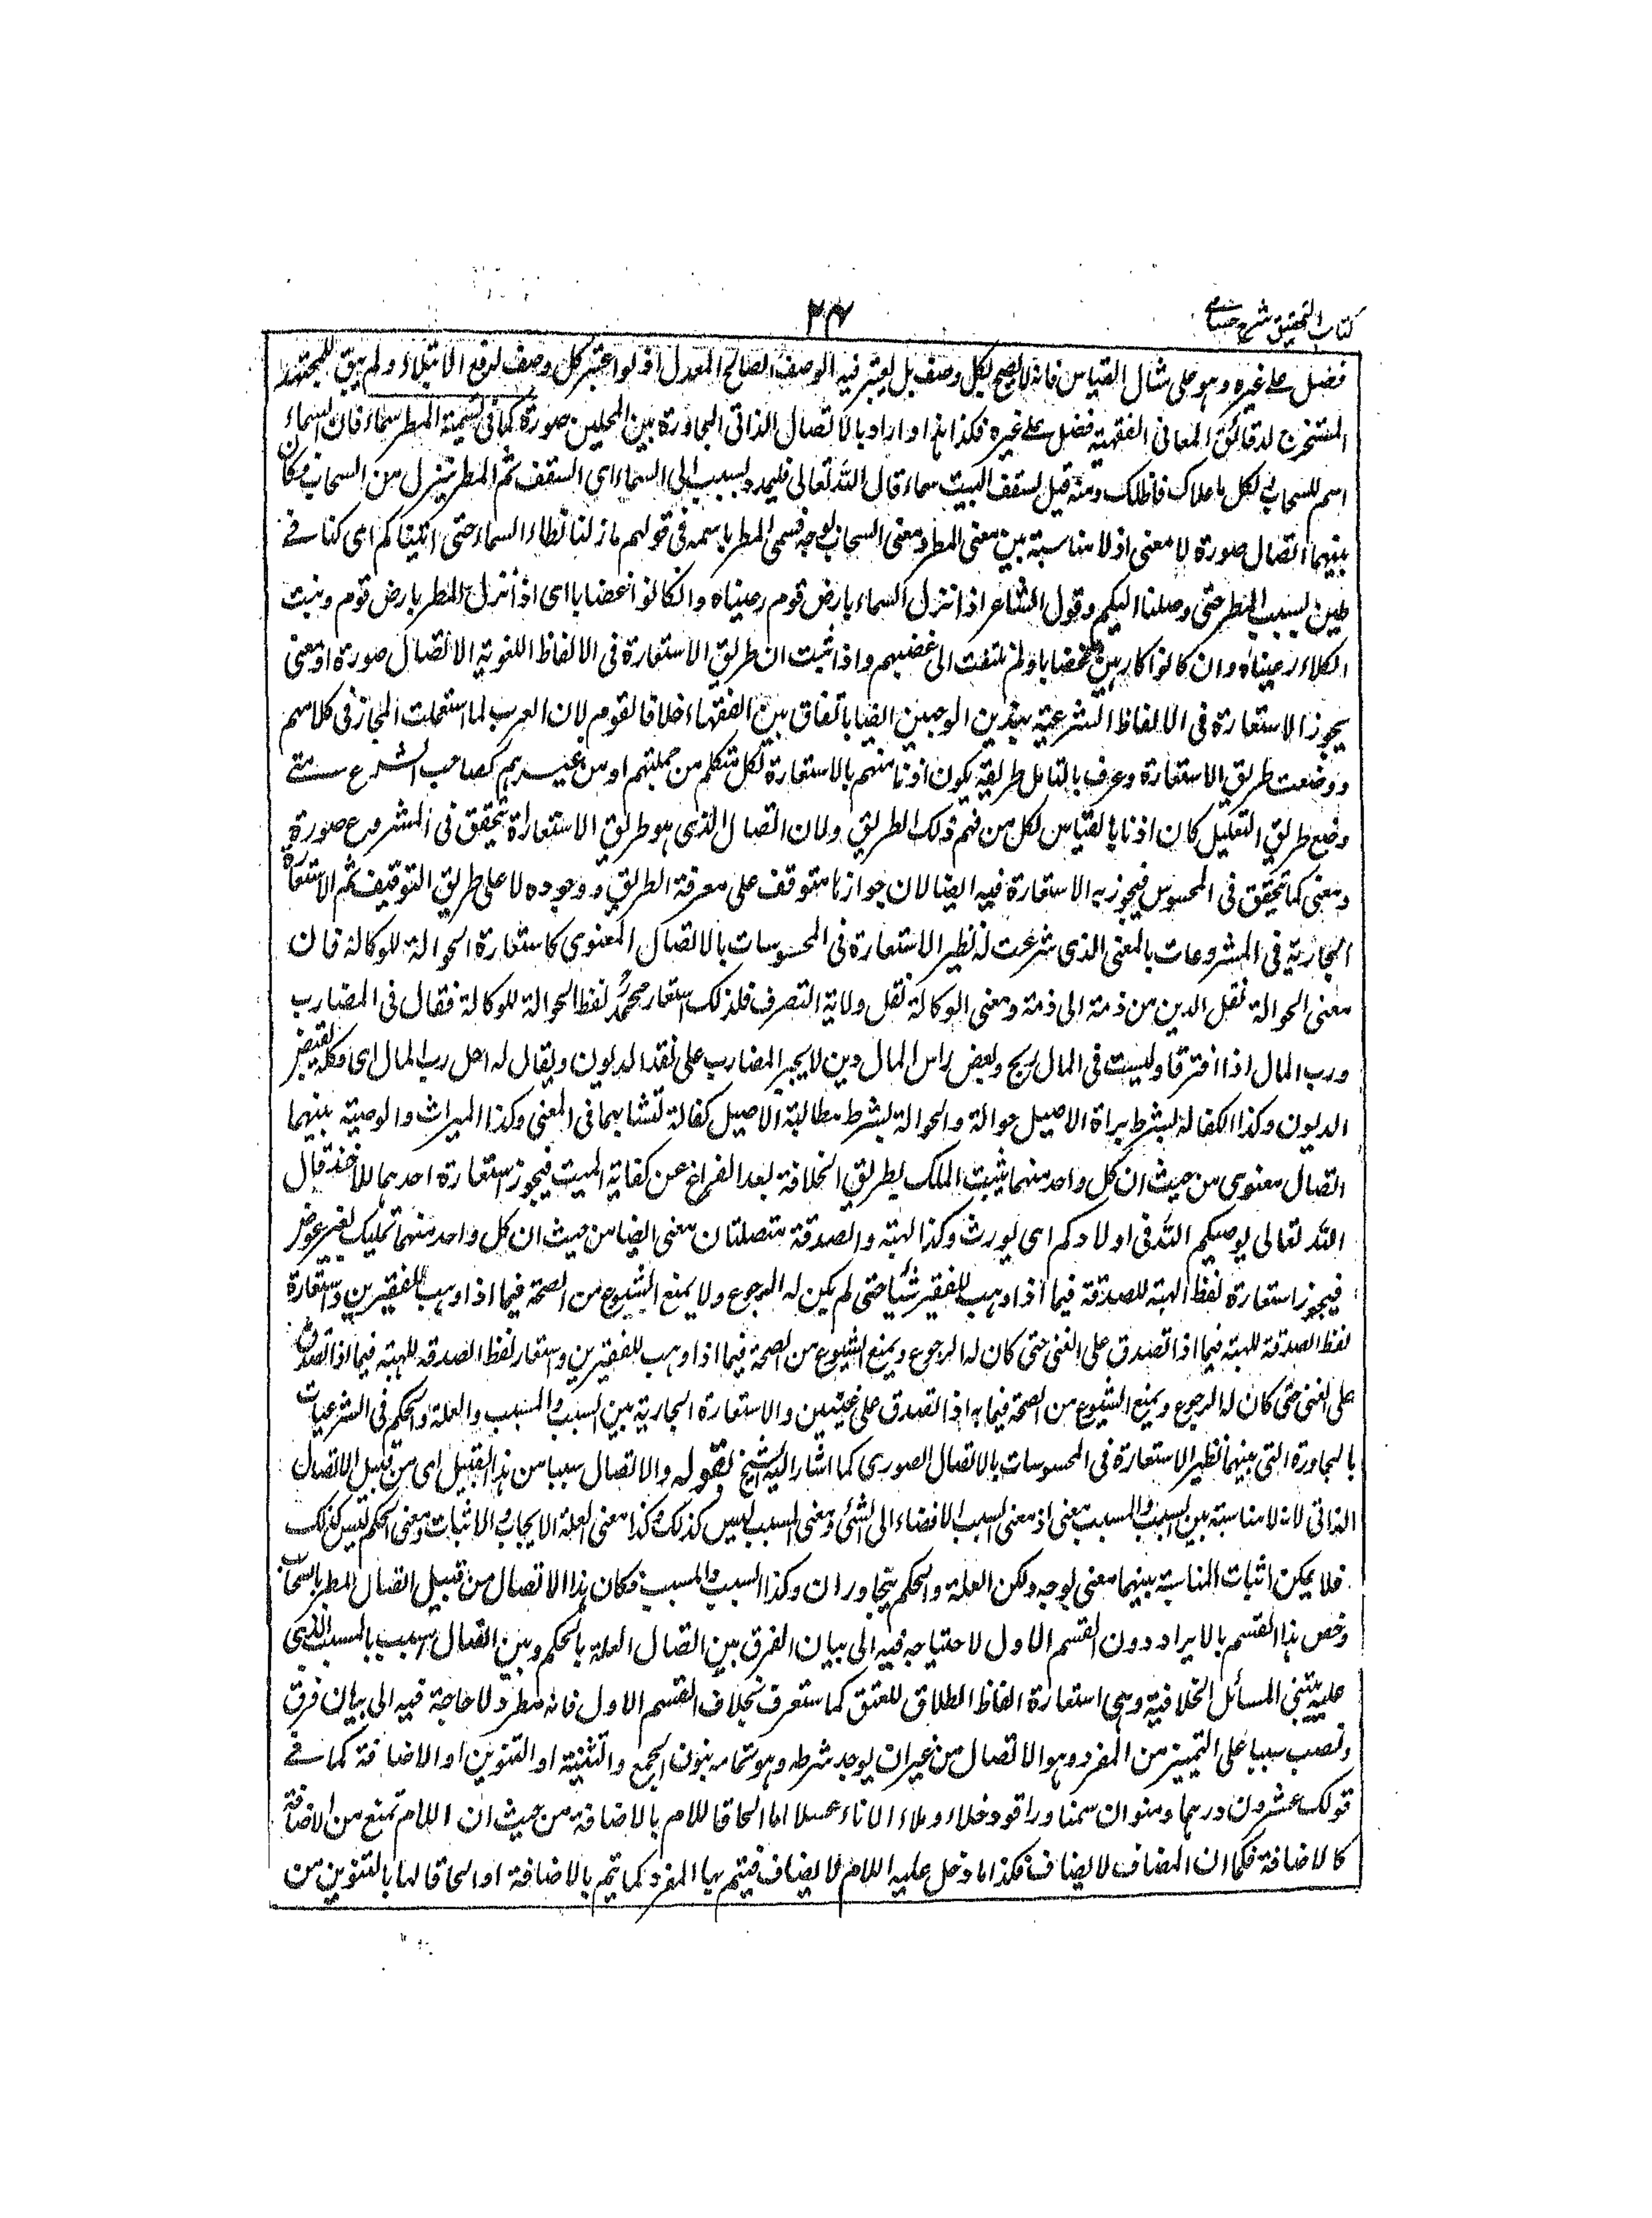 كتاب التحقيق شرح حسامي
٢٤
فضل على غيره وهو على مثال القياس فانه لا يصح لكل وصف بل يعتبر فيه الوصف الصالح المعدل اذ لو اعتبر كل وصف لرفع الابتلاء ولم يبق للمجتهد
المستخرج لدقائق المعانى الفقهية فضل على غيره فكذا هذا واراد بالاتصال الذاتى المجاورة بين المحلين صورة كما فى تسمية المطر سماء فان السماء
اسم للسحاب لكل ما علاك فاظلك ومنه قيل لسقف البيت سماء قال الله تعالى فليمدد بسبب الى السماء اى السقف ثم المطر ينزل من السحاب وكان
بينهما اتصال صورة لا معنى اذ لا مناسبة بين معنى المطر ومعنى السحاب بوجه فسمى المطر باسمه فى قولهم ما زلنا نطاء السماء حتى اتيناكم اى كنا فى
طين بسبب المطر حتى وصلنا اليكم وقول الشاعر اذا نزل السماء بارض قوم رعيناه وان كانوا غضابا اى اذا نزل المطر بارض قوم ونبت
الكلاء رعيناه وان كانوا كارهين غضابا ولم نلتفت الى غضبهم واذا ثبت ان طريق الاستعارة فى الالفاظ اللغوية الاتصال صورة او معنى
يجوز الاستعارة فى الالفاظ الشرعية بهذين الوجهين ايضا باتفاق بين الفقهاء خلافا لقوم لان العرب لما استعملت المجاز فى كلامهم
ووضعت طريق الاستعارة وعرف بالتامل طريقه يكون اذنا منهم بالاستعارة لكل متكلم من جملتهم او من غيرهم كصاحب الشرع متى
وضع طريق التعليل كان اذنا بالقياس لكل من فهم ذلك الطريق ولان الاتصال الذى هو طريق الاستعارة يتحقق فى المشروع صورة
ومعنى كما تحقق فى المحسوس فيجوز به الاستعارة فيه ايضا لان جوازها متوقف على معرفة الطريق ووجوده لا على طريق التوقيف ثم الاستعارة
الجارية فى المشروعات بالمعنى الذى شرعت له نظير الاستعارة فى المحسوسات بالاتصال المعنوى كاستعارة الحوالة للوكالة فان
معنى الحوالة نقل الدين من ذمة الى ذمة ومعنى الوكالة نقل ولاية التصرف فلذلك استعار محمد لفظ الحوالة للوكالة فقال فى المضارب
ورب المال اذا افترقا وليست فى المال ربح وبعض راس المال دين لا يجبر المضارب على نقد الديون ويقال له احل رب المال اى وكله بقبض
الديون وكذا الكفالة بشرط براة الاصيل حوالة والحوالة بشرط مطالبة الاصيل كفالة لتشابهما فى المعنى وكذا الميراث والوصية بينهما
اتصال معنوى من حيث ان كل واحد منهما يثبت الملك بطريق الخلافة بعد الفراغ عن كفاية الميت فيجوز استعارة احدهما للآخر قال
الله تعالى يوصيكم الله فى اولادكم اى يورث وكذا الهبة والصدقة متصلتان معنى ايضا من حيث ان كل واحد منهما تمليك بغير عوض
فيجوز استعارة لفظ الهبة للصدقة فيما اذا وهب للفقير شيئا حتى لم يكن له الرجوع ولا يمنع الشيوع من الصحة فيما اذا وهب للفقيرين واستعارة
لفظ الصدقة للهبة فيما اذا تصدق على الغنى حتى كان له الرجوع ويمنع الشيوع من الصحة فيما اذا وهب للفقيرين واستعار لفظ الصدقة للهبة فيما اذا تصدق
على الغنى حتى كان له الرجوع ويمنع الشيوع من الصحة فيما به اذا تصدق على غنيين والاستعارة الجارية بين السبب والمسبب والعلة والحكم فى الشرعيات
بالمجاورة التى بينهما نظير الاستعارة فى المحسوسات بالاتصال الصورى كما اشار اليه الشيخ بقوله والاتصال سببا من هذا القبيل اى من قبيل الاتصال
الذاتى لانه لا مناسبة بين السبب والمسبب معنى اذ معنى السبب الافضاء الى الشئ ومعنى المسبب ليس كذلك وكذا معنى العلة الايجاب والاثبات ومعنى الحكم ليس كذلك
فلا يمكن اثبات المناسبة بينهما معنى بوجه ولكن العلة والحكم يتجاوران وكذا السبب والمسبب فكان هذا الاتصال من قبيل اتصال المطر بالسحاب
وخص هذا القسم بالايراد دون القسم الاول لاحتياجه فيه الى بيان الفرق بين اتصال العلة بالحكم وبين اتصال السبب بالمسبب الذى
عليه يبتنى المسائل الخلافية وهى استعارة الفاظ الطلاق للعتق كما ستعرف بخلاف القسم الاول فانه مطرد لا حاجة فيه الى بيان فرق
ونصب سببا على التمييز من المفرد وهو الاتصال من غير ان يوجد شرطه وهو تمامه بنون الجمع والتثنية او التنوين او الاضافة كما فى
قولك عشرون درهما ومنوان سمنا وراقود خلاء وملاء الاناء عسلا اما الحاقا للام بالاضافة من حيث ان اللام تمنع من الاضافة
كالاضافة فكما ان المضاف لا يضاف فكذا ما دخل عليه اللام لا يضاف فيتم بها المفرد كما يتم بالاضافة او الحاقا لها بالتنوين من